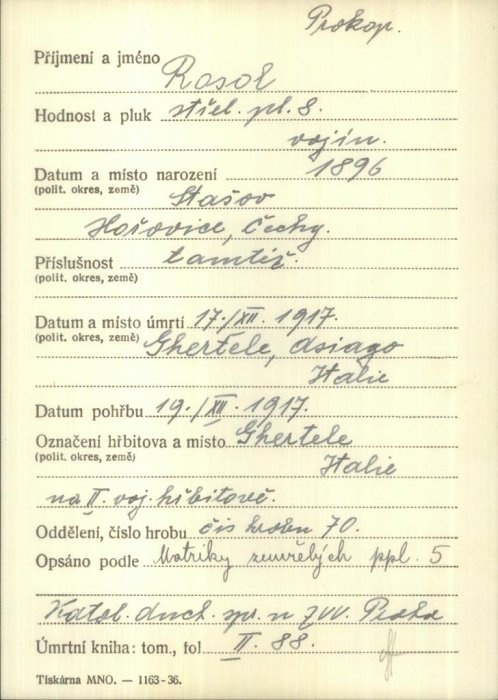 Prokop.
Příjmení a jméno Rosol
Hodnost a pluk střel. pl. 8.
vojín.
Datum a místo narození 1896
(polit. okres, země) Stašov
Hořovice, Čechy.
Příslušnost tamtéž.
(polit. okres, země)
Datum a místo úmrtí 17./XII. 1917.
(polit. okres, země) Ghertele, Asiago
Italie
Datum pohřbu 19./XII. 1917.
Označení hřbitova a místo Ghertele
(polit. okres, země) Italie
na II. voj. hřbitově.
Oddělení, číslo hrobu čís hrobu 70.
Opsáno podle Matriky zemřelých ppl. 5
Katol. duch. spr. u ZVV. Praha
Úmrtní kniha: tom., fol II. 88.
Tiskárna MNO. — 1163-36.